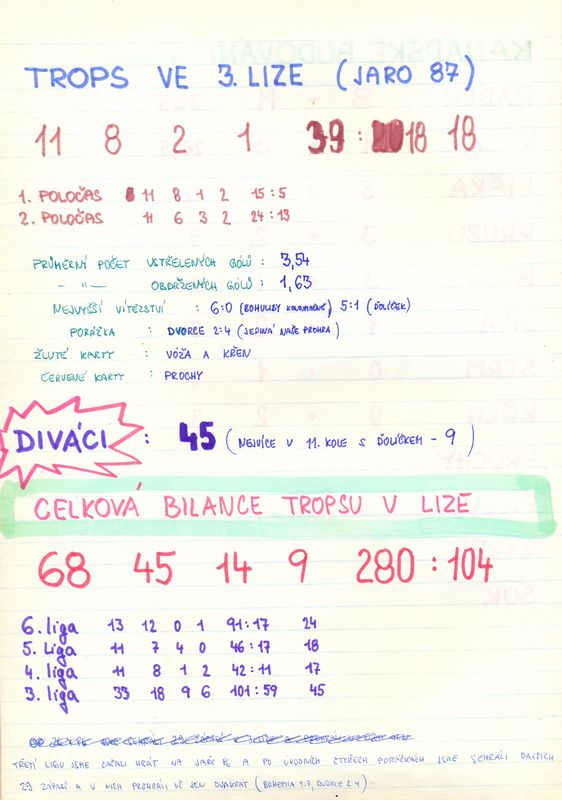 TROPS VE 3. LIZE (JARO 87)
11 8 2 1 39 : 18 18
1. POLOČAS 11 8 1 2 15 : 5
2. POLOČAS 11 6 3 2 24 : 13
PRŮMERNÍ POČET VSTŘELENÝCH GÓLŮ : 3,54
– " – OBDRŽENÝCH GÓLŮ : 1,63
NEJVYŠŠÍ VÍTĚZSTVÍ : 6:0 (BOHULIBY) 5:1 (ĎOLÍČEK)
PORÁŽKA : DVORCE 2:4 (JEDINÁ NAŠE PROHRA)
ŽLUTÉ KARTY : VÓŽA A KŘEN
ČERVENÉ KARTY : PROCHY
DIVÁCI : 45 (NEJVÍCE V 11. KOLE S ĎOLÍČKEM – 9)
CELKOVÁ BILANCE TROPSU V LIZE
68 45 14 9 280 : 104
6. liga 13 12 0 1 91 : 17 24
5. liga 11 7 4 0 46 : 17 18
4. liga 11 8 1 2 42 : 11 17
3. liga 33 18 9 6 101 : 59 45
TŘETÍ LIGU JSME ZAČALI HRÁT NA JAŘE 86 A PO ÚVODNÍCH ČTYŘECH PORÁŽKÁCH JSME SEHRÁLI DALŠÍCH
29 ZÁPASŮ A V NICH PROHRÁLI UŽ JEN DVAKRÁT (BOHEMIA 1:7, DVORCE 2:4).